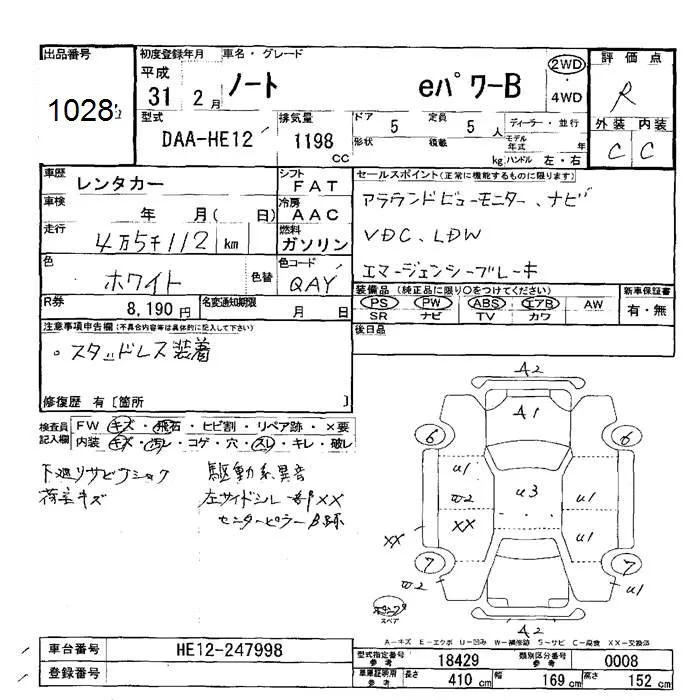 出品番号
1028
初度登録年月
平成
31 2月
車名・グレード
ノート eパワーB
2WD
4WD
評価点
R
外装 内装
C C
型式
DAA-HE12
排気量
1198
CC
ドア 5 定員 5 人
形状 積載 kg
ディーラー・並行
モデル年式 年
ハンドル 左・右
車歴 レンタカー
シフト FAT
車検 年 月( 日)
冷房 AAC
走行 4万5千112 km
燃料 ガソリン
色 ホワイト 色替
色コード QAY
R券 8,190 円
名変通知期限 月 日
セールスポイント(正常に機能するものに限ります)
アラウンドビューモニター、ナビ
VDC、LDW
エマージェンシーブレーキ
装備品(純正品に限り○をつけてください)
PS PW ABS エアB AW
SR ナビ TV カワ
新車保証書
有・無
後日品
注意事項申告欄(不具合内容等は具体的に記入して下さい)
・スタッドレス装着
修復歴 有[箇所 ]
検査員記入欄
FW キズ・飛石・ヒビ割・リペア跡・×要
内装 キズ・汚レ・コゲ・穴・スレ・キレ・破レ
下廻りサビ
荷室キズ
駆動系異音
左サイドシル XX
センターピラー
A2
A1
6 6
u1
u3
u1
w2
XX
XX
u1
7 7
w2
u1
A2
スペア
A-キズ E-エクボ U-凹み W-補修跡 S-サビ C-腐食 XX-交換済
車台番号 HE12-247998
登録番号
型式指定番号 参考 18429
類別区分番号 参考 0008
車庫証明用 参考 長さ 410 cm 幅 169 cm 高さ 152 cm